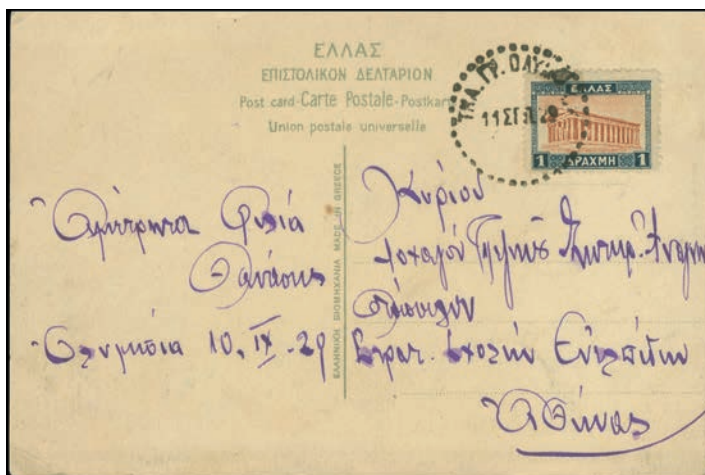 ΕΛΛΑΣ
ΕΠΙΣΤΟΛΙΚΟΝ ΔΕΛΤΑΡΙΟΝ
Post card-Carte Postale-Postkart
Union postale universelle
ΤΗΛ. ΓΡ. ΟΛΥ
11 ΣΕΠ 29
ΕΛΛΑΣ
1 ΔΡΑΧΜΗ 1
ΕΛΛΗΝΙΚΗ ΒΙΟΜΗΧΑΝΙΑ MADE IN GREECE
φιλιά
Θανάσης
Ολυμπία 10. IX - 29
Κύριον
Λοχαγόν
Στρατ. Σχολήν Ευελπίδων
Αθήνας